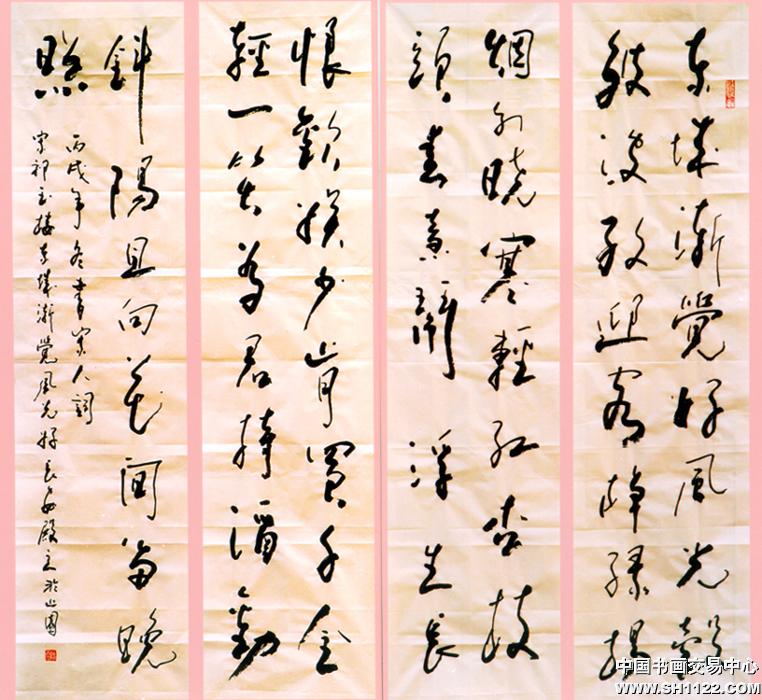 东城漸覺好風光縠
皺波紋迎客棹綠楊
烟外曉寒輕紅杏枝
頭春意鬧浮生長
恨歡娛少肯買千金
輕一笑為君持酒勸
斜陽且向花間留晚
照
丙戌年冬書宋人詞
宋祁玉樓春城漸覺風光好長安殿主於止園
中国书画交易中心
www.SH1122.com